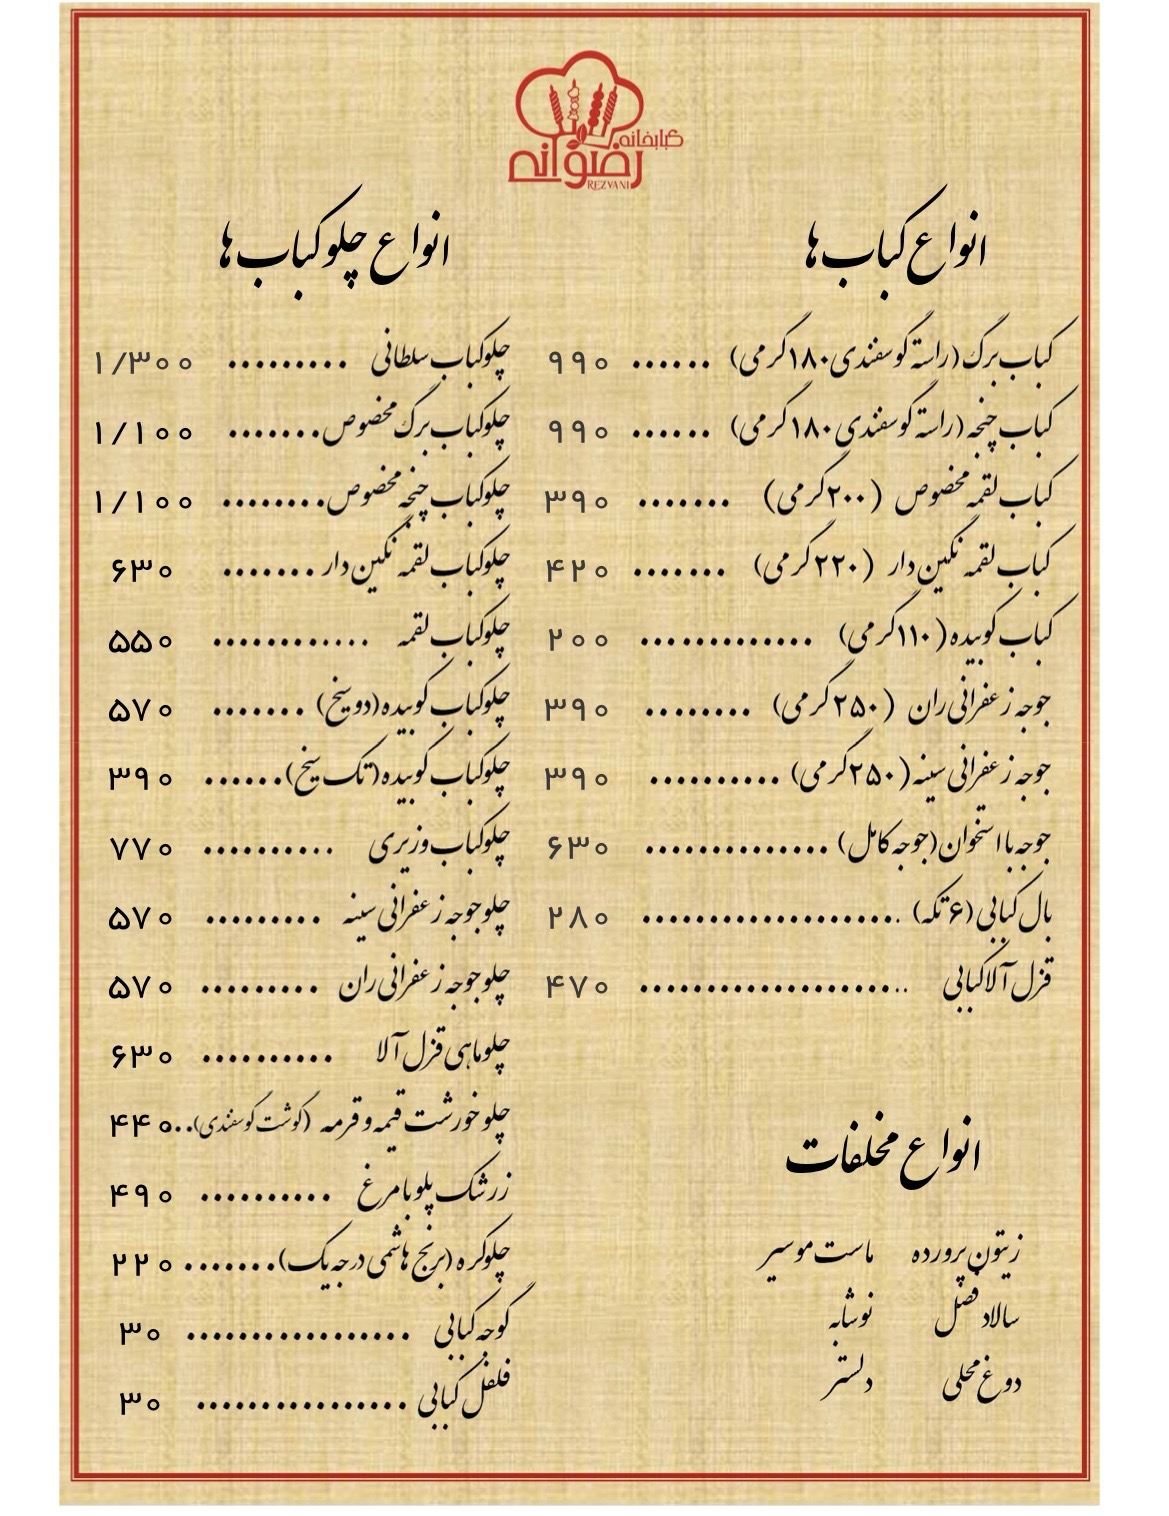 کبابخانه
رضوانی
REZVANI
انواع کباب‌ها
کباب برگ (راسته گوسفندی ۱۸۰گرمی) ...... ۹۹۰
کباب چنجه (راسته گوسفندی ۱۸۰گرمی) ...... ۹۹۰
کباب لقمه مخصوص (۲۰۰گرمی) ....... ۳۹۰
کباب لقمه نگین دار (۲۲۰گرمی) ....... ۴۲۰
کباب کوبیده (۱۱۰گرمی) ............. ۲۰۰
جوجه زعفرانی ران (۲۵۰گرمی) ........ ۳۹۰
جوجه زعفرانی سینه (۲۵۰گرمی) .......... ۳۹۰
جوجه با استخوان (جوجه کامل) .............. ۶۳۰
بال کبابی (۶ تکه) .................... ۲۸۰
قزل آلا کبابی ..................... ۴۷۰
انواع مخلفات
زیتون پرورده ماست موسیر
سالاد فصل نوشابه
دوغ محلی دلستر
انواع چلوکباب‌ها
چلوکباب سلطانی ......... ۱/۳۰۰
چلوکباب برگ مخصوص ....... ۱/۱۰۰
چلوکباب چنجه مخصوص ........ ۱/۱۰۰
چلوکباب لقمه نگین دار ....... ۶۳۰
چلوکباب لقمه ............ ۵۵۰
چلوکباب کوبیده (دو سیخ) ....... ۵۷۰
چلوکباب کوبیده (تک سیخ) ...... ۳۹۰
چلوکباب وزیری .......... ۷۷۰
چلو جوجه زعفرانی سینه ......... ۵۷۰
چلو جوجه زعفرانی ران ......... ۵۷۰
چلو ماهی قزل آلا .......... ۶۳۰
چلو خورشت قیمه و قرمه (گوشت گوسفندی)... ۴۴۰
زرشک پلو با مرغ .......... ۴۹۰
چلوکره (برنج هاشمی درجه یک) ....... ۲۲۰
گوجه کبابی ................. ۳۰
فلفل کبابی ................ ۳۰